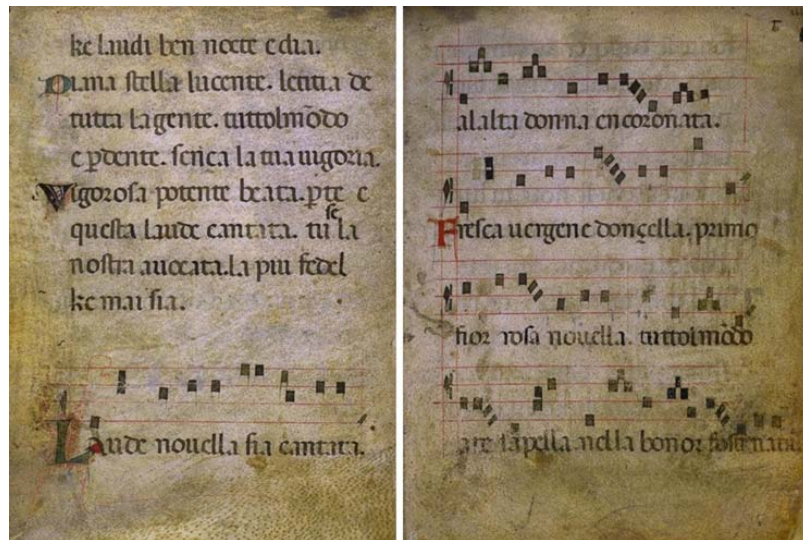 ke laudi ben nocte e dia.
Diana stella lucente. letitia de
tutta la gente. tuttolmōdo
e p̄dente. sença la tua uigoria.
Vigorosa potente beata. p̄ te e
questa laude cantata. tu se la
nostra auocata. la piu fedel
ke mai sia.
Laude nouella sia cantata.
alalta donna encoronata.
Fresca uergene donçella. primo
fior rosa nouella. tuttolmōdo
ate sapella. nella bonor foste nata